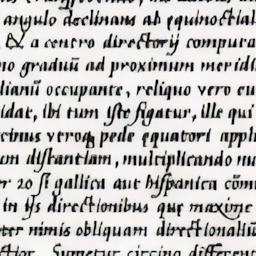 angulo declinans ab equinoctial
& a centro directorij computa
no graduū ad proximum meridi
dianū occupante, reliquo vero cu
idat, ibi tum iste figatur, ille qui
cinus veroq pede equatori appli
um distantiam, multiplicando nu
er 20 si gallica aut hispanica cōm
in ijs directionibus que maxime
ter nimis obliquam directionaliū
ctior. Sumetur circino different